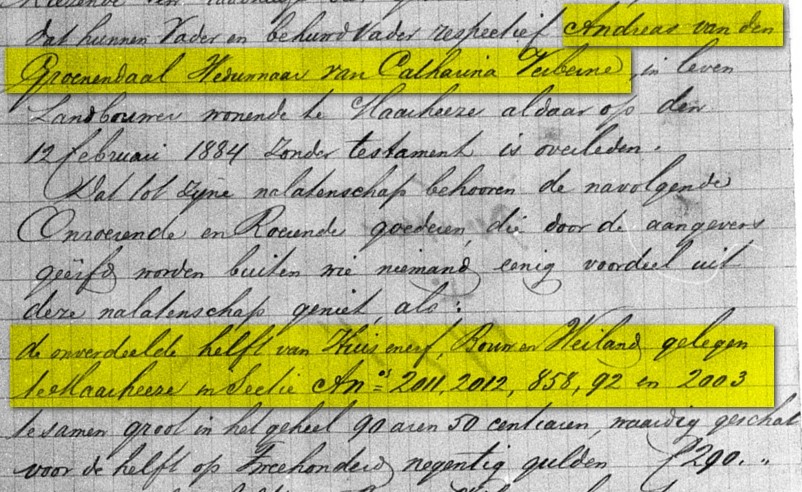 dat hunnen Vader en behuwd Vader respectief Andreas van den
Groenendaal Weduwnaar van Catharina Verberne, in leven
Landbouwer wonende te Maarheeze aldaar op den
12 februari 1884 zonder testament is overleden.
Dat tot zyne nalatenschap behooren de navolgende
Onroerende en Roerende goederen, die door de aangevers
geërfd worden buiten wie niemand eenig voordeel uit
deze nalatenschap geniet, als:
de onverdeelde helft van Huis en erf, Bouw en Weiland gelegen
te Maarheeze in Sectie A nos 2011, 2012, 858, 92 en 2003
te samen groot in het geheel 90 aren 50 centiaren, waardig geschat
voor de helft op Tweehonderd negentig gulden f 290.,,